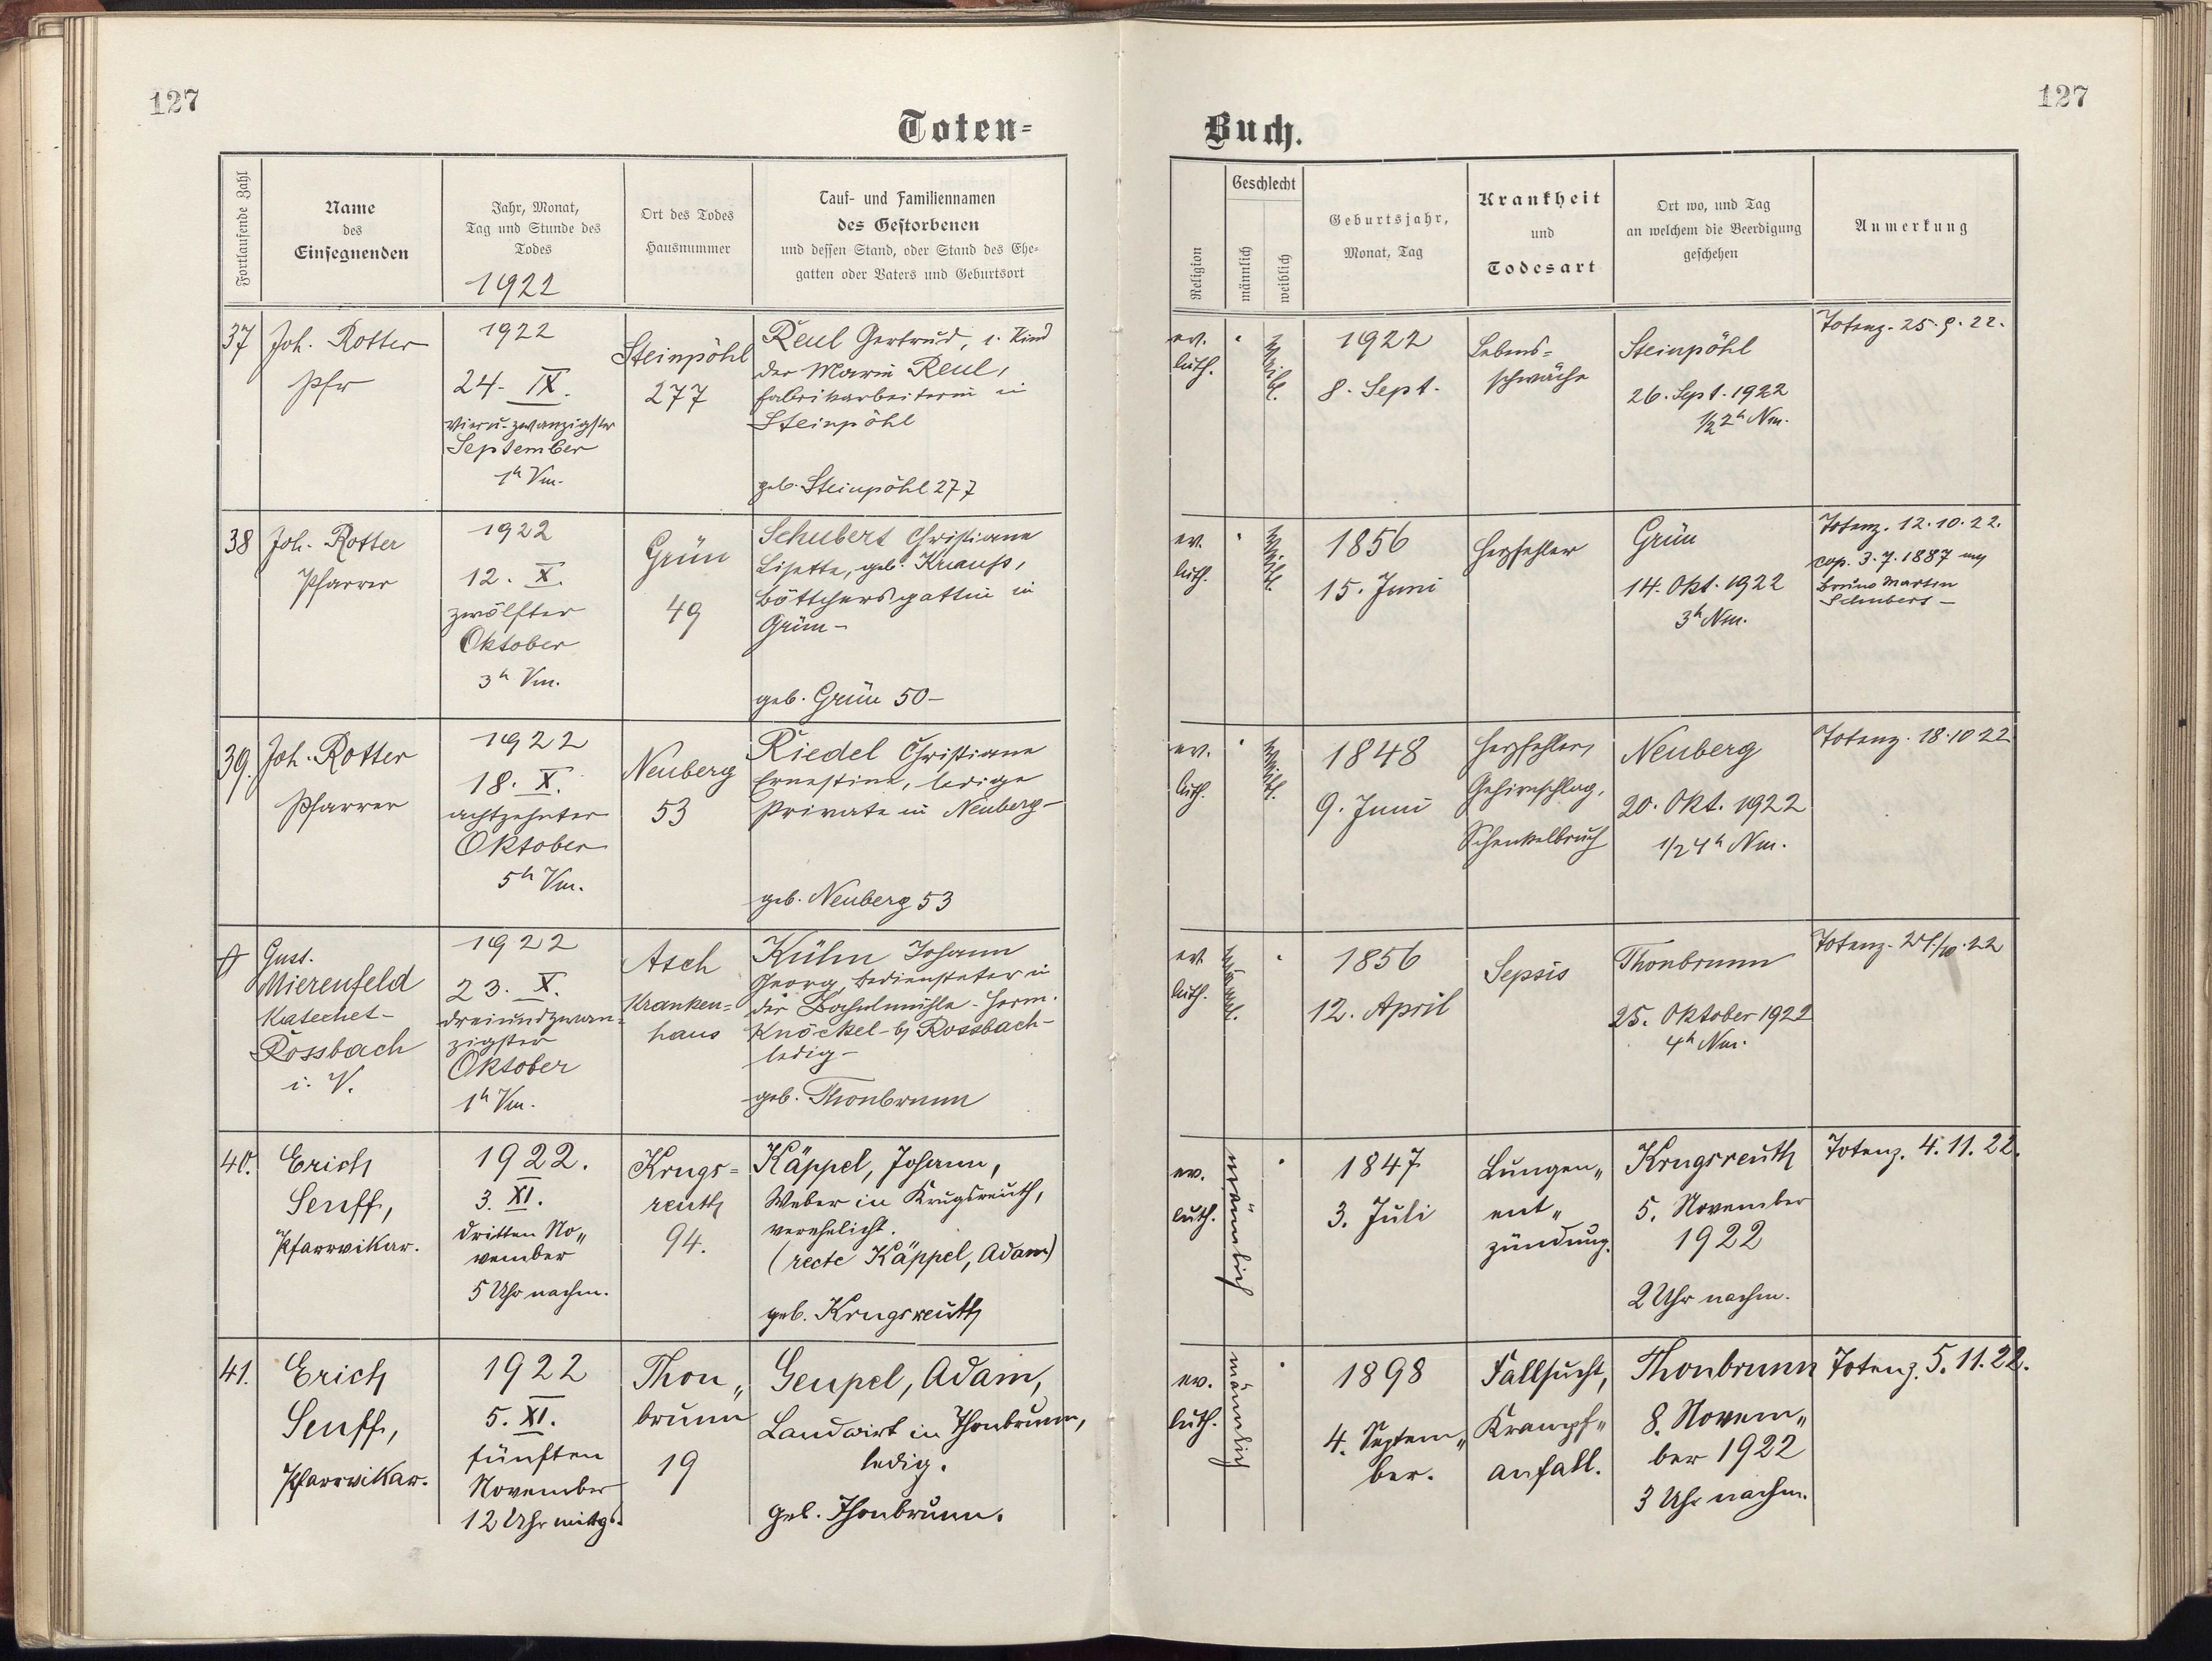 127
127
Toten=
Buch.
Fortlaufende Zahl
Name
des
Einsegnenden
Jahr, Monat,
Tag und Stunde des
Todes
1922
Ort des Todes
Hausnummer
Tauf- und Familiennamen
des Gestorbenen
und dessen Stand, oder Stand des Ehe-
gatten oder Vaters und Geburtsort
Religion
Geschlecht
männlich
weiblich
Geburtsjahr,
Monat, Tag
Krankheit
und
Todesart
Ort wo, und Tag
an welchem die Beerdigung
geschehen
Anmerkung
37
Joh. Rotter
Pfr
1922
24. IX.
vieru. zwanzigster
September
1h Vm.
Steinpöhl
277
Reul Gertrud, u. Kind
der Marie Reul,
Fabrikarbeiterin in
Steinpöhl
geb. Steinpöhl 277
ev.
luth.
weibl.
1922
8. Sept.
Lebens=
schwäche
Steinpöhl
26. Sept. 1922
1/2 2h Nm.
Totenz. 25.9.22.
38
Joh. Rotter
Pfarrer
1922
12. X.
zwölfter
Oktober
3h Vm.
Grün
49
Schubert Christiane
Lisette, geb. Krauß,
Böttchersgattin in
Grün-
geb. Grün 50-
ev.
luth.
weibl.
1856
15. Juni
Herzfehler
Grün
14. Okt. 1922
3h Nm.
Totenz. 12.10.22.
cop. 3.7.1887 m
Bruno Martin
Schubert-
39.
Joh. Rotter
Pfarrer
1922
18. X.
achtzehnter
Oktober
5h Vm.
Neuberg
53
Riedel Christiane
Ernestine, ledige
Private in Neuberg-
geb. Neuberg 53
ev.
luth.
weibl.
1848
9. Juni
Herzfehler,
Gehirnschlag,
Schenkelbruch
Neuberg
20. Okt. 1922
1/2 4h Nm.
Totenz. 18.10 22
Gust.
Mierenfeld
Katechet-
Rossbach
i. V.
1922
23. X.
dreiundzwan=
zigster
Oktober
1h Vm.
Asch
Kranken=
haus
Kühn Johann
Georg, Bediensteter in
der - Herm.
Knöckel - b/ Rossbach-
ledig-
geb. Thonbrunn
ev.
luth.
männl.
1856
12. April
Sepsis
Thonbrunn
25. Oktober 1922
4h Nm.
Totenz. 24/10.22
40.
Erich
Senff,
Pfarrvikar.
1922.
3. XI.
dritten No„
vember
5 Uhr nachm.
Krugs=
reuth
94.
Käppel, Johann,
Weber in Krugsreuth,
verehelicht.
(recte Käppel, Adam)
geb. Krugsreuth
ev.
luth.
männlich
1847
3. Juli
Lungen„
ent„
zündung.
Krugsreuth
5. November
1922
2 Uhr nachm.
Totenz. 4.11.22.
41.
Erich
Senff,
Pfarrvikar.
1922
5. XI.
fünften
November
12 Uhr mittgs.
Thon„
brunn
19
Geupel, Adam,
Landwirt in Thonbrunn,
ledig.
geb. Thonbrunn.
ev.
luth.
männlich
1898
4. Septem„
ber.
Fallsucht,
Krampf„
anfall.
Thonbrunn
8. Novem„
ber 1922
3 Uhr nachm.
Totenz. 5.11.22.